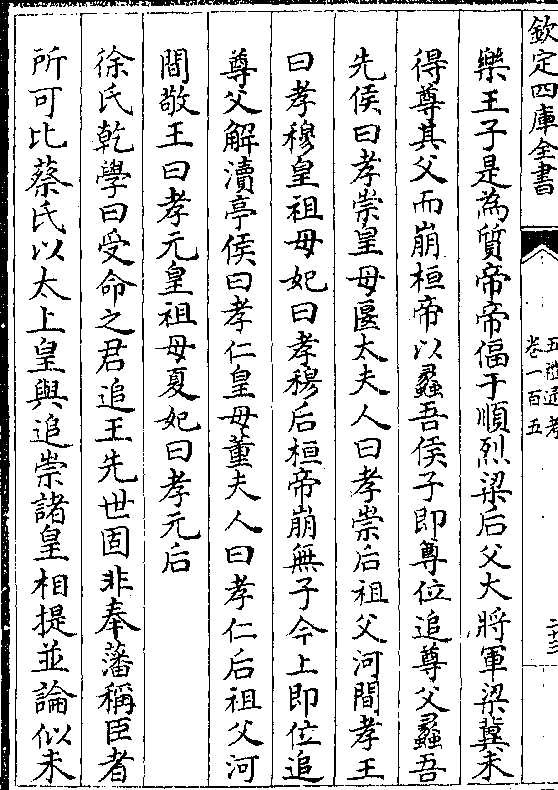 欽定四庫全書
五禮通考
卷一百五
二十三
樂王子是為質帝帝偪于順烈梁后父大將軍梁冀未
得尊其父而崩桓帝以蠡吾侯子即尊位追尊父蠡吾
先侯曰孝崇皇母匽太夫人曰孝崇后祖父河間孝王
曰孝穆皇祖母妃曰孝穆后桓帝崩無子今上即位追
尊父解瀆亭侯曰孝仁皇母董夫人曰孝仁后祖父河
間敬王曰孝元皇祖母夏妃曰孝元后
徐氏乾學曰受命之君追王先世固非奉藩稱臣者
所可比蔡氏以太上皇與追崇諸皇相提並論似未